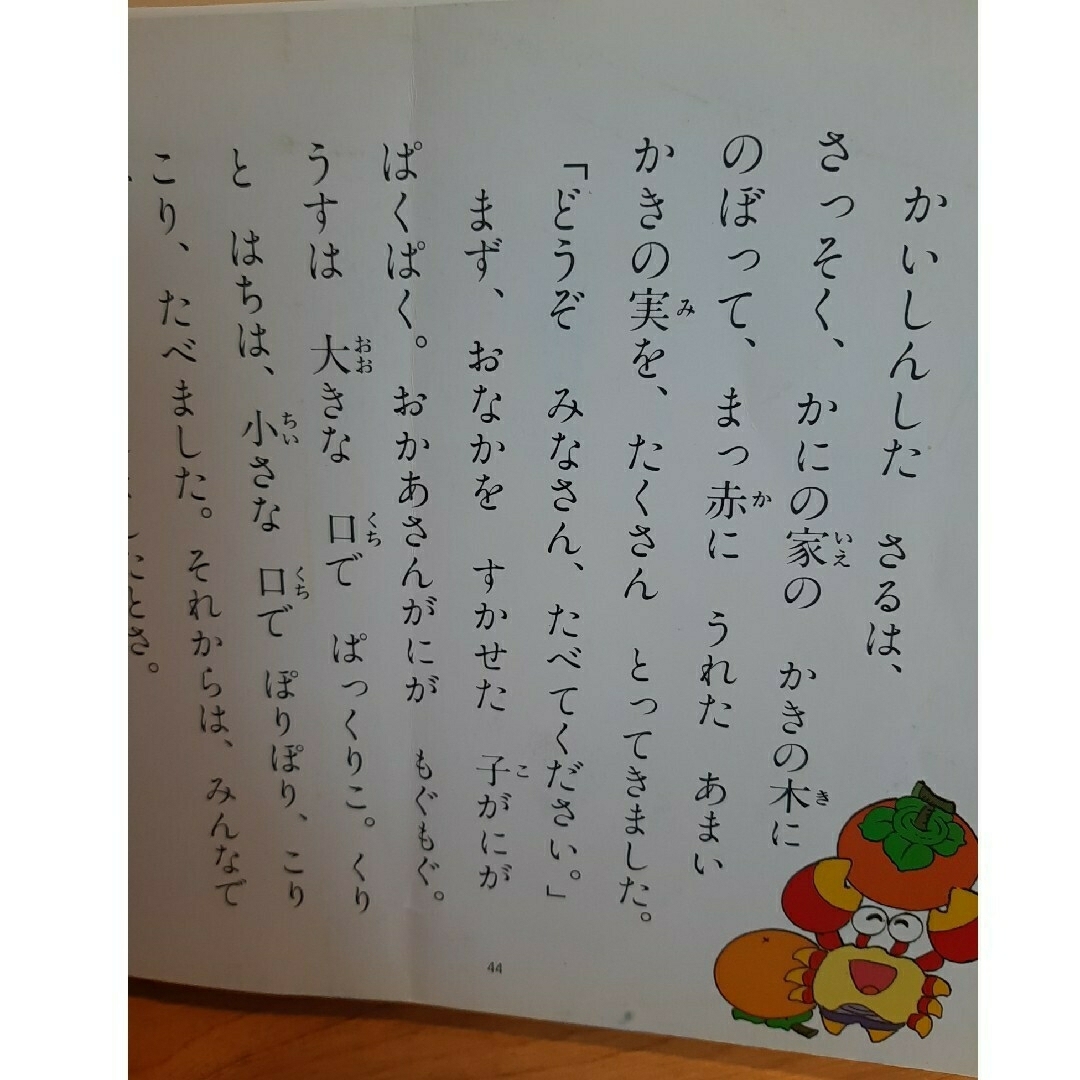 かいしんした さるは、
さっそく、かにの家の かきの木に
のぼって、まっ赤に うれた あまい
かきの実を、たくさん とってきました。
「どうぞ みなさん、たべてください。」
まず、おなかを すかせた 子がにが
ぱくぱく。おかあさんがにが もぐもぐ。
うすは 大きな 口で ぱっくりこ。くり
と はちは、小さな 口で ぽりぽり、こり
こり、たべました。それからは、みんなで
とさ。
44